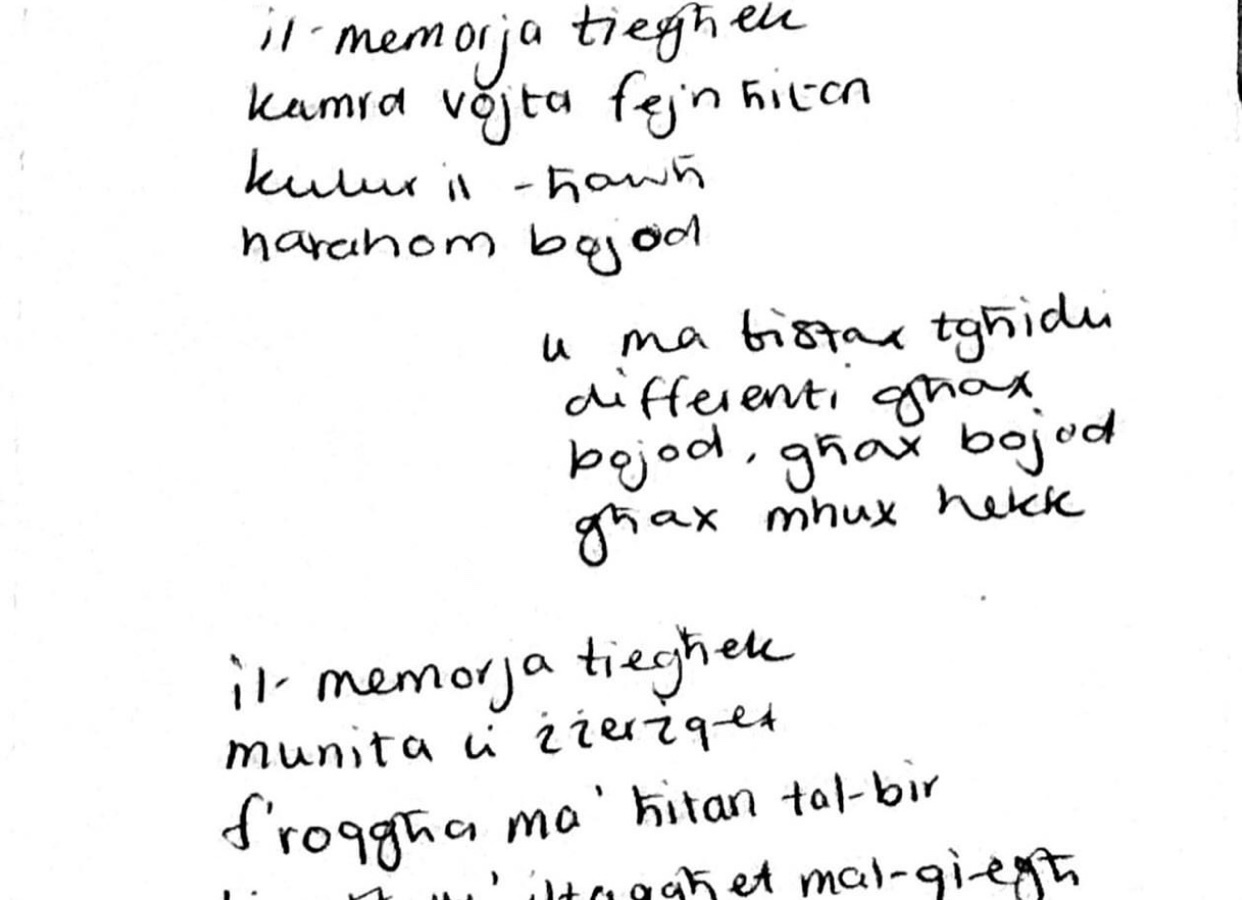 il-memorja tiegħek
kamra vojta fejn ħitan
kulur il-ħawħ
narahom bojod
u ma tistax tgħidu
differenti għax
bojod, għax bojod
għax mhux hekk
il-memorja tiegħek
munita li żżerżqet
f'roqgħa ma' ħitan tal-bir
iltaqgħet mal-qiegħ